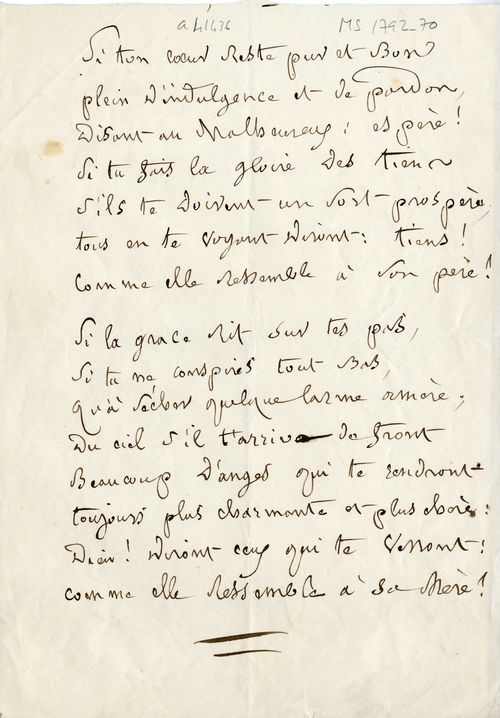 a 41436 MS 1792-70
Si ton cœur reste pur et Bon
plein D'indulgence et de pardon,
Disant au Malheureux : espère !
Si tu fais la gloire Des tiens
S'ils te Doivent un Sort prospère,
tous en te voyant Diront : tiens !
comme elle ressemble à Son père !
Si la grace rit sur tes pas,
Si tu ne conspires tout Bas,
Qu'à sécher quelque larme amère ;
Du ciel s'il t'arrive de front
Beaucoup D'anges qui te rendront
toujours plus charmante et plus chère :
Dieu ! Diront ceux qui te Verront :
comme elle ressemble à Sa Mère !